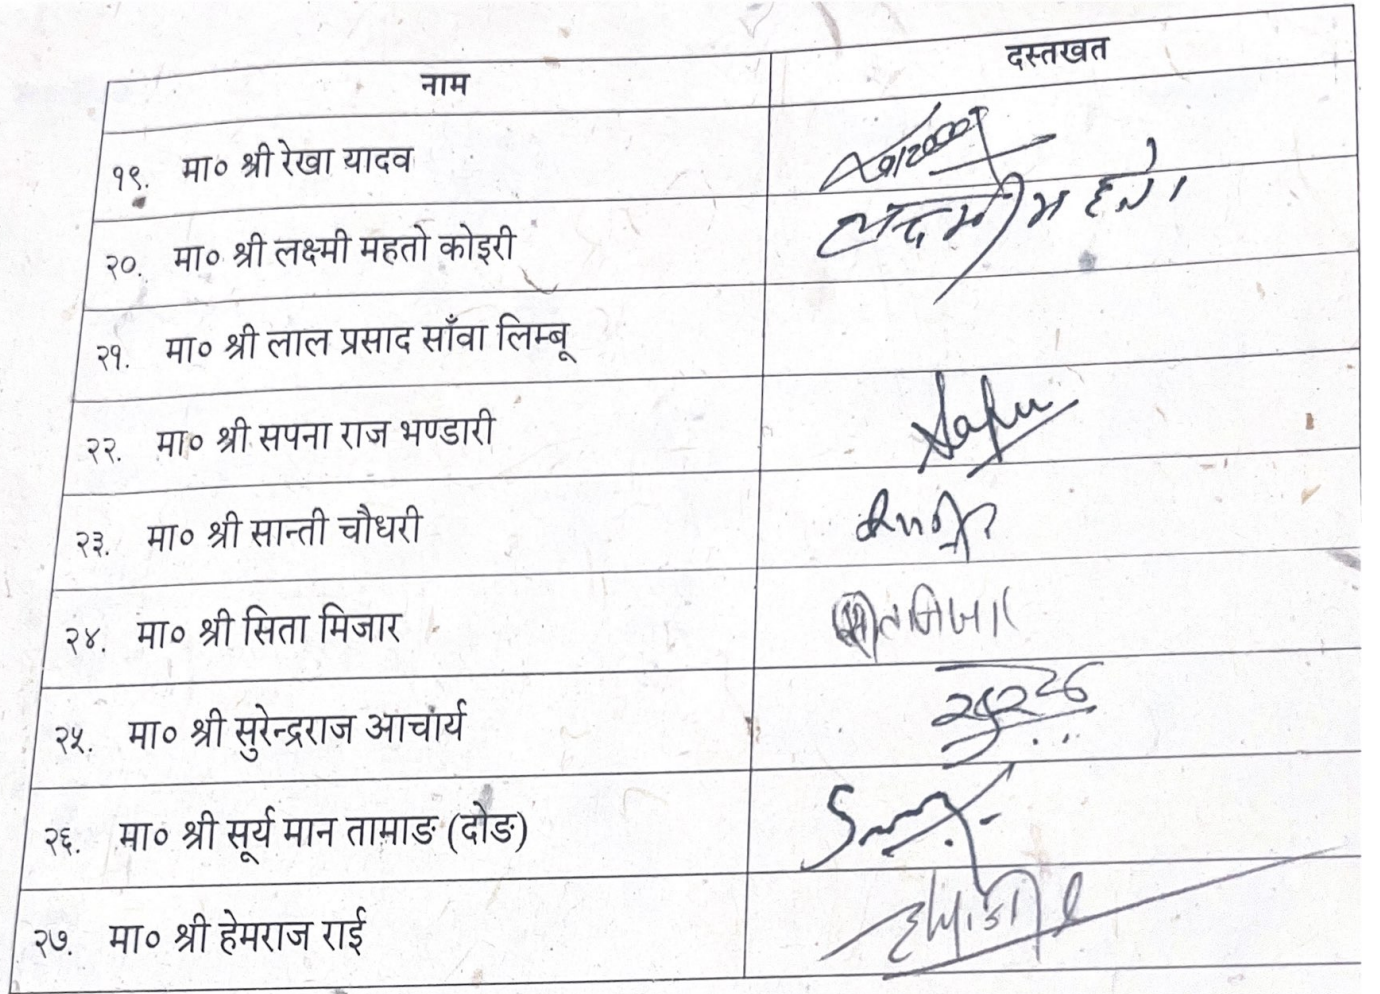 नाम दस्तखत
१९. मा० श्री रेखा यादव
२०. मा० श्री लक्ष्मी महतो कोइरी
२१. मा० श्री लाल प्रसाद साँवा लिम्बू
२२. मा० श्री सपना राज भण्डारी
२३. मा० श्री सान्ती चौधरी
२४. मा० श्री सिता मिजार
२५. मा० श्री सुरेन्द्रराज आचार्य
२६. मा० श्री सूर्य मान तामाङ (दोङ)
२७. मा० श्री हेमराज राई